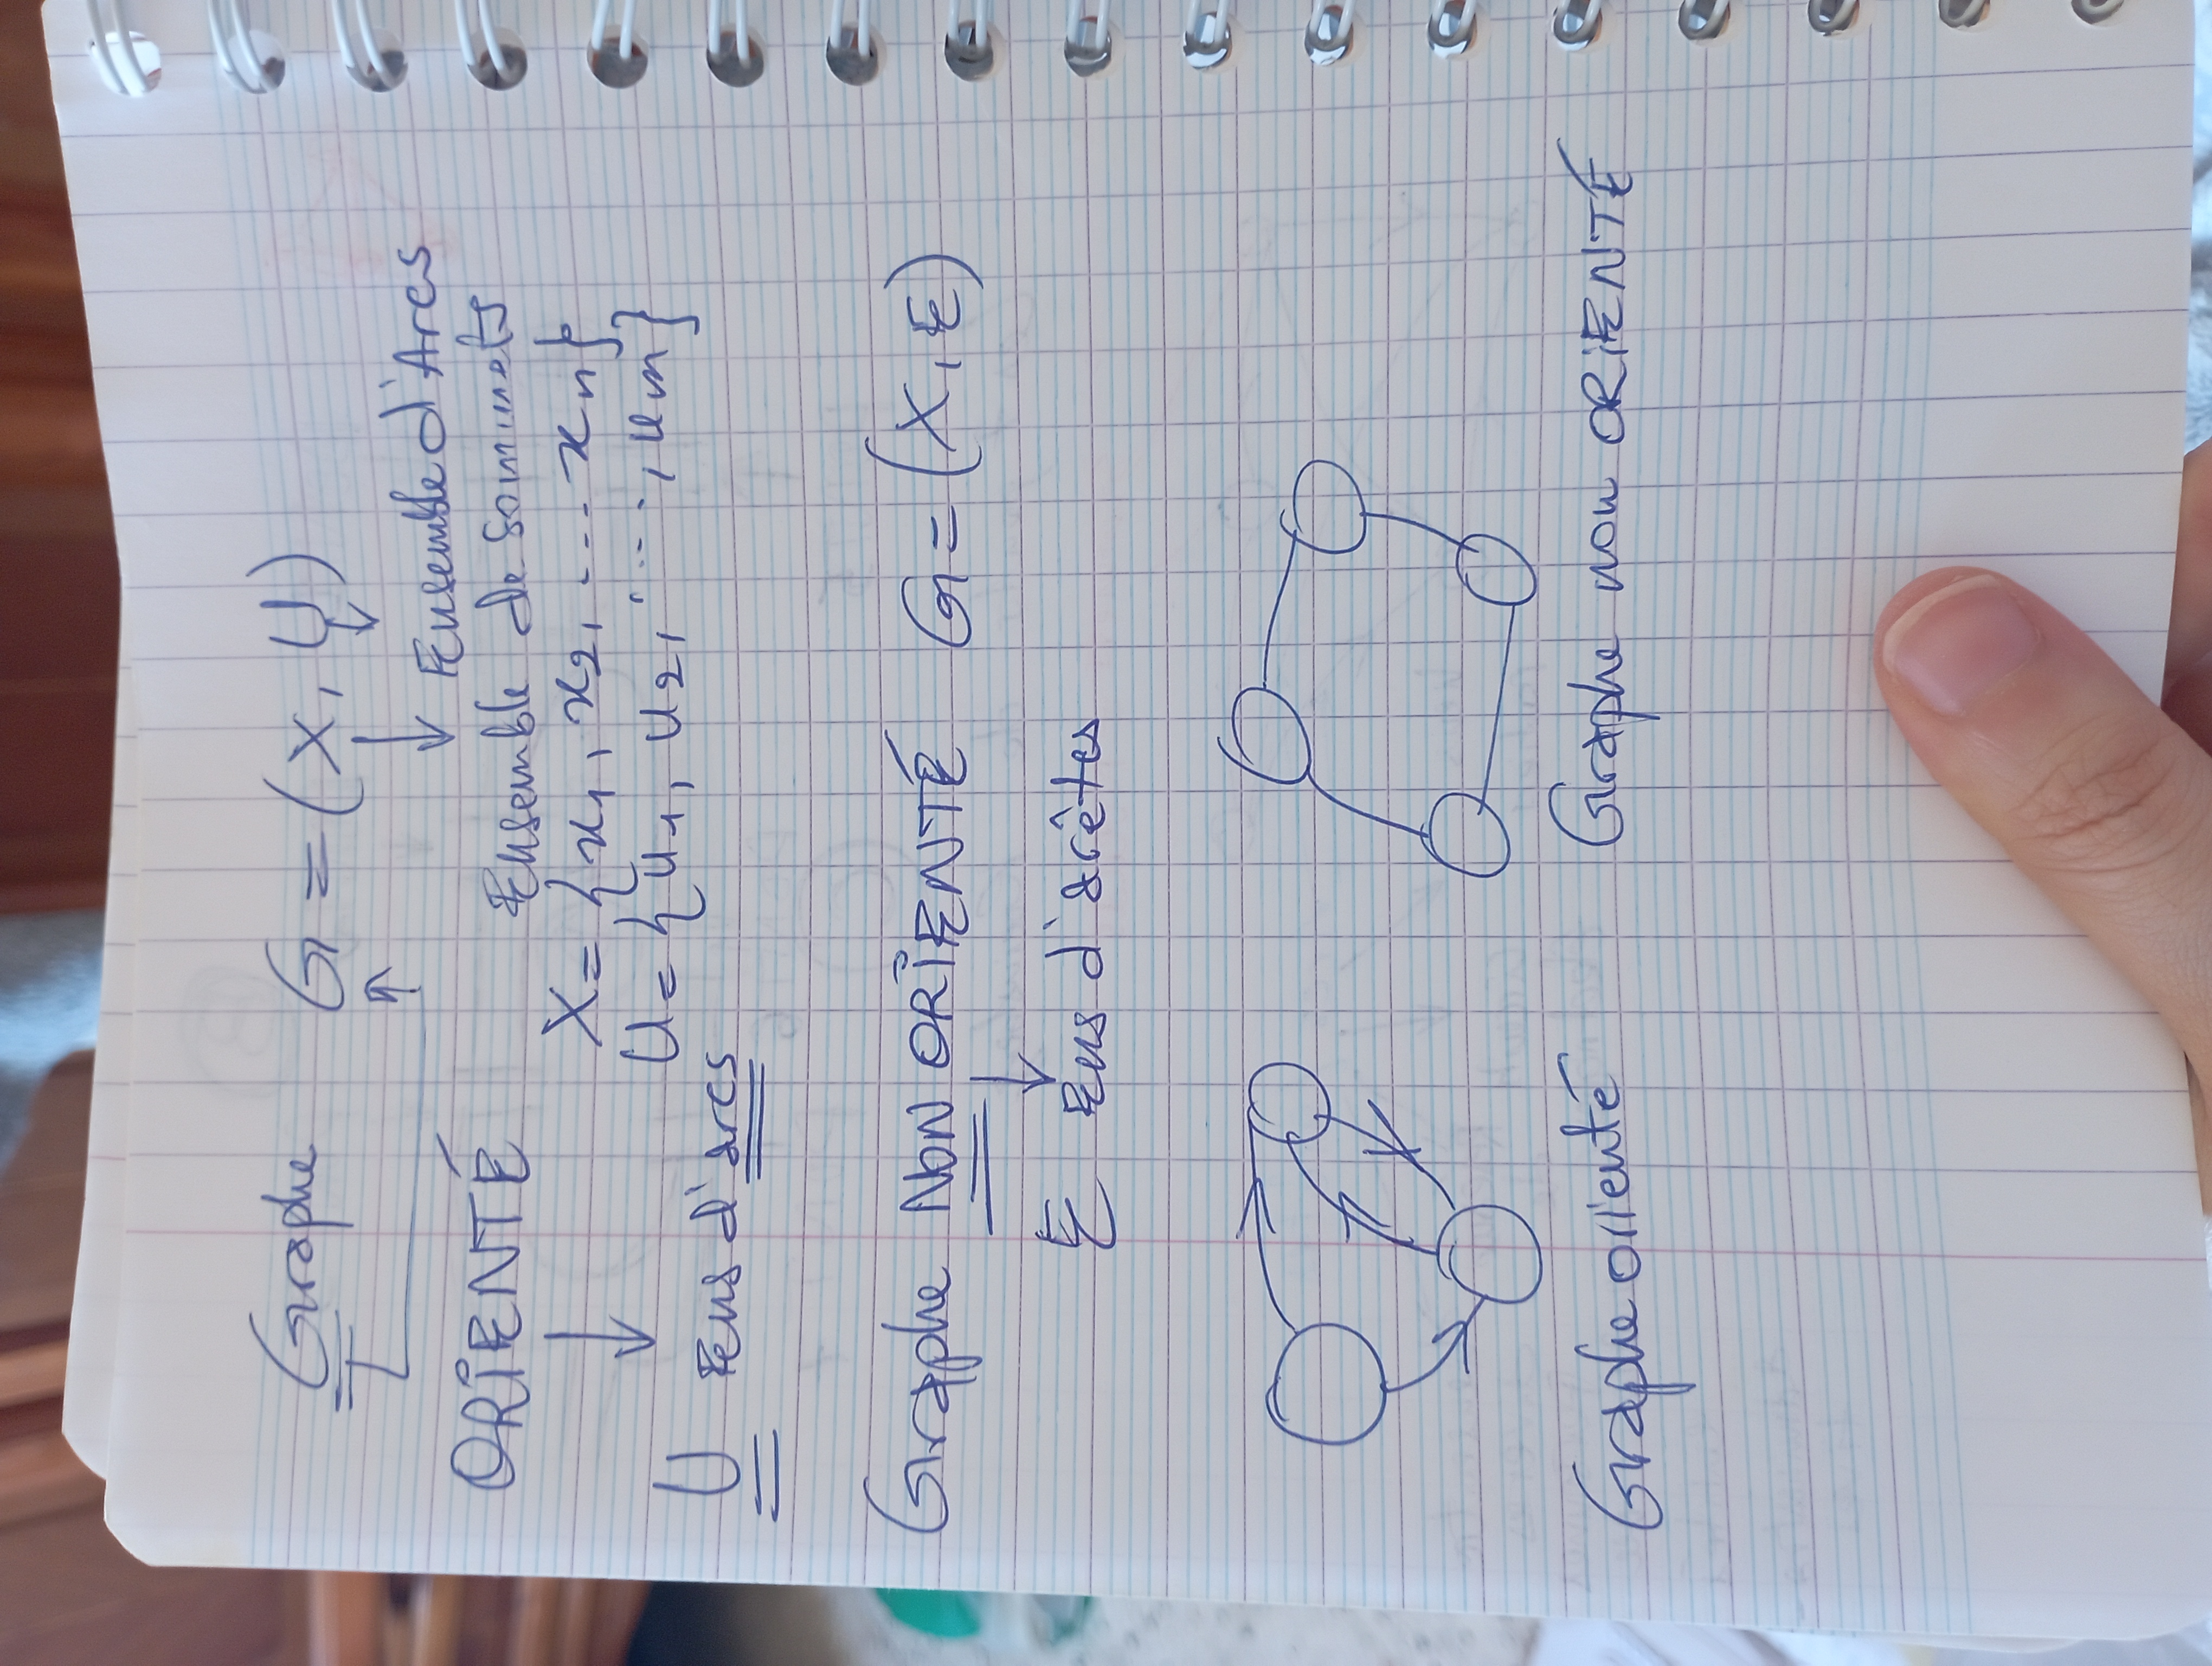 Graphe G = (X, U)
Ensemble d'Arcs
ORIENTÉ Ensemble de sommets
X = {x1, x2, ... xn}
U = {u1, u2, ..., um}
U Ens d'arcs
Graphe NON ORIENTÉ G = (X, E)
E Ens d'arêtes
Graphe orienté Graphe non ORIENTÉ